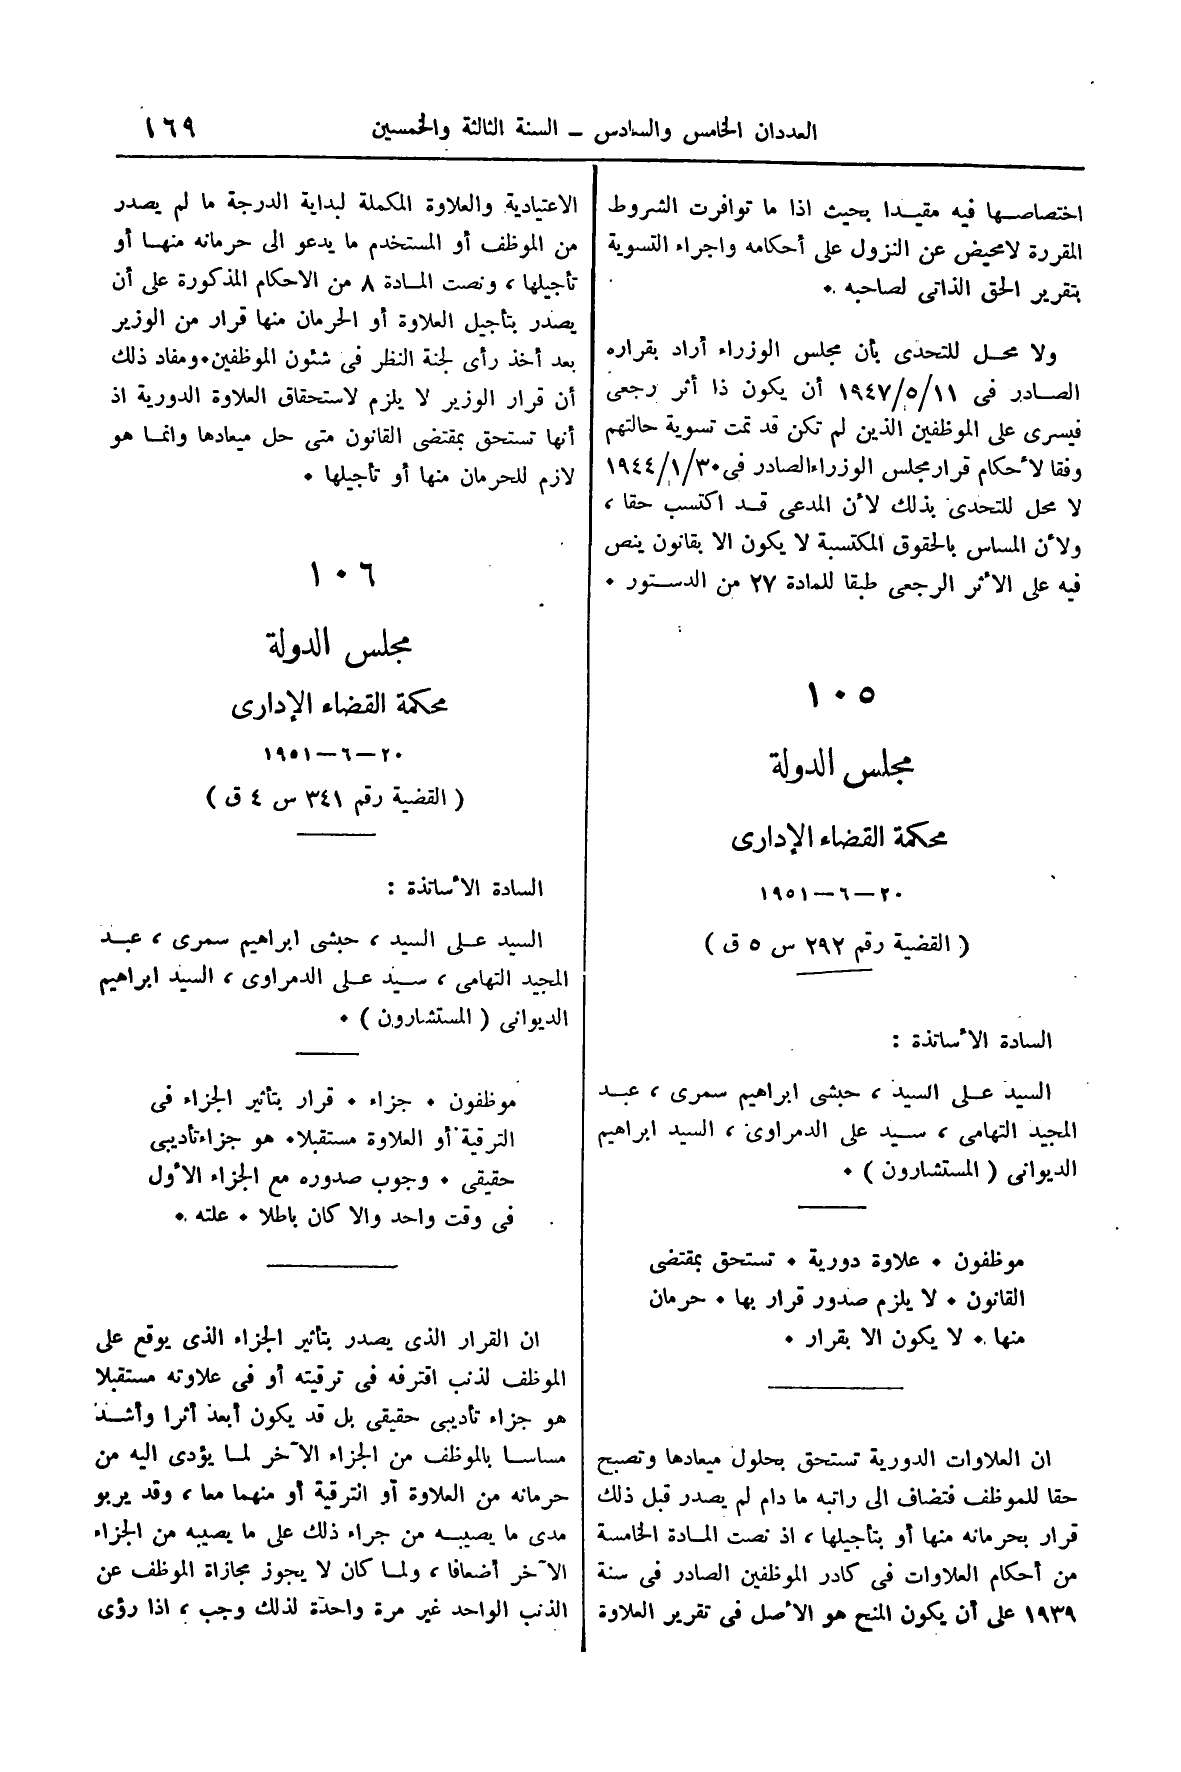 العددان الخامس والسادس – السنة الثالثة والخمسين
١٦٩
اختصاصها فيه مقيدا بحيث اذا ما توافرت الشروط
المقررة لامحيض عن النزول على أحكامه واجراء التسوية
بتقرير الحق الذاتى لصاحبه .
ولا محل للتحدى بأن مجلس الوزراء أراد بقراره
الصادر فى ١٩٤٧/٥/١١ أن يكون ذا أثر رجعى
فيسرى على الموظفين الذين لم تكن قد تمت تسوية حالتهم
وفقا لأحكام قرار مجلس الوزراء الصادر فى ١٩٤٤/١/٣٠
لا محل للتحدى بذلك لأن المدعى قد اكتسب حقا ،
ولأن المساس بالحقوق المكتسبة لا يكون الا بقانون ينص
فيه على الأثر الرجعى طبقا للمادة ٢٧ من الدستور .
١٠٥
مجلس الدولة
محكمة القضاء الإدارى
٢٠–٦–١٩٥١
( القضية رقم ٢٩٢ س ٥ ق )
السادة الأساتذة :
السيد على السيد ، حبشى ابراهيم سمرى ، عبد
المجيد التهامى ، سيد على الدمراوى ، السيد ابراهيم
الديوانى ( المستشارون ) .
موظفون . علاوة دورية . تستحق بمقتضى
القانون . لا يلزم صدور قرار بها . حرمان
منها . لا يكون الا بقرار .
ان العلاوات الدورية تستحق بحلول ميعادها وتصبح
حقا للموظف فتضاف الى راتبه ما دام لم يصدر قبل ذلك
قرار بحرمانه منها أو بتأجيلها ، اذ نصت المادة الخامسة
من أحكام العلاوات فى كادر الموظفين الصادر فى سنة
١٩٣٩ على أن يكون المنح هو الأصل فى تقرير العلاوة
الاعتيادية والعلاوة المكملة لبداية الدرجة ما لم يصدر
من الموظف أو المستخدم ما يدعو الى حرمانه منها أو
تأجيلها ، ونصت المادة ٨ من الاحكام المذكورة على أن
يصدر بتأجيل العلاوة أو الحرمان منها قرار من الوزير
بعد أخذ رأى لجنة النظر فى شئون الموظفين . ومفاد ذلك
أن قرار الوزير لا يلزم لاستحقاق العلاوة الدورية اذ
أنها تستحق بمقتضى القانون متى حل ميعادها وانما هو
لازم للحرمان منها أو تأجيلها .
١٠٦
مجلس الدولة
محكمة القضاء الإدارى
٢٠–٦–١٩٥١
( القضية رقم ٣٤١ س ٤ ق )
السادة الأساتذة :
السيد على السيد ، حبشى ابراهيم سمرى ، عبد
المجيد التهامى ، سيد على الدمراوى ، السيد ابراهيم
الديوانى ( المستشارون ) .
موظفون . جزاء . قرار بتأثير الجزاء فى
الترقية أو العلاوة مستقبلا . هو جزاء تأديبى
حقيقى . وجوب صدوره مع الجزاء الأول
فى وقت واحد والا كان باطلا . علته .
ان القرار الذى يصدر بتأثير الجزاء الذى يوقع على
الموظف لذنب اقترفه فى ترقيته أو فى علاوته مستقبلا
هو جزاء تأديبى حقيقى بل قد يكون أبعد أثرا وأشد
مساسا بالموظف من الجزاء الآخر لما يؤدى اليه من
حرمانه من العلاوة أو الترقية أو منهما معا ، وقد يربو
مدى ما يصيبه من جراء ذلك على ما يصيبه من الجزاء
الآخر أضعافا ، ولما كان لا يجوز مجازاة الموظف عن
الذنب الواحد غير مرة واحدة لذلك وجب ، اذا رؤى